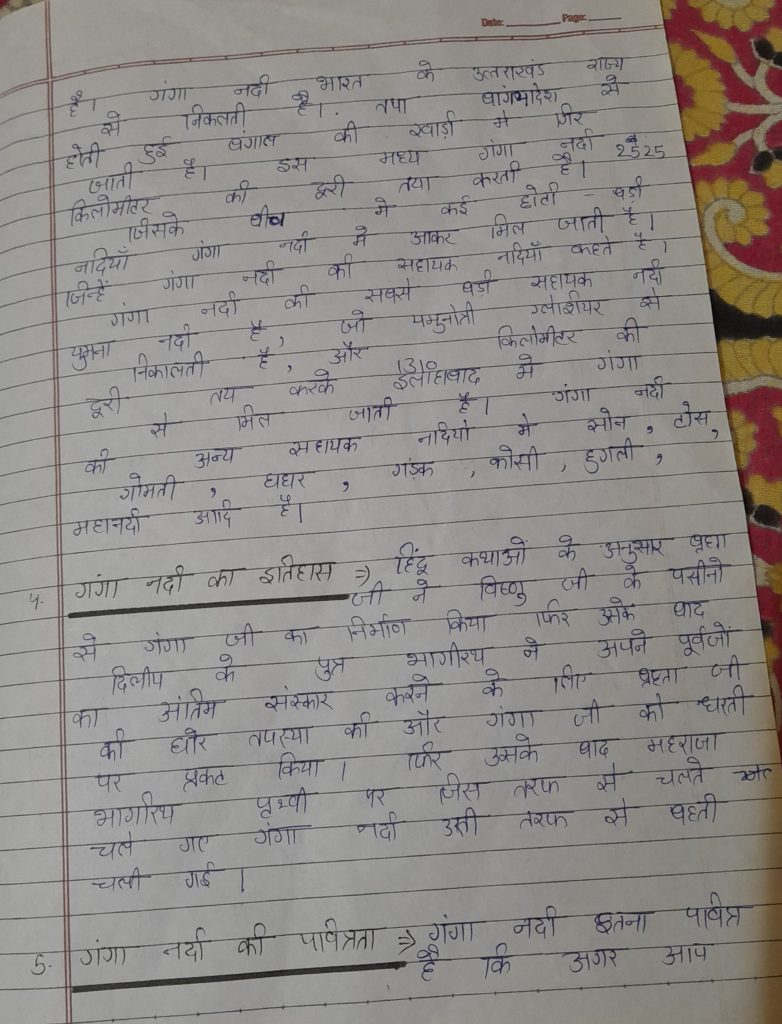 Date: ______ Page: ______
है। गंगा नदी भारत के उत्तराखंड राज्य
से निकलती है। तथा बांग्लादेश से
होती हुई बंगाल की खाड़ी में गिर
जाती है। इस मध्य गंगा नदी 2525
किलोमीटर की दूरी तया करती है।
जिसके बीच में कई छोटी - बड़ी
नदियाँ गंगा नदी में आकर मिल जाती है।
जिन्हें गंगा नदी की सहायक नदियाँ कहते है।
गंगा नदी की सबसे बड़ी सहायक नदी
युमना नदी है, जो यमुनोती ग्लेशियर से
निकालती है, और 1310 किलोमीटर की
दूरी तय करके इलाहाबाद में गंगा
से मिल जाती है। गंगा नदी
की अन्य सहायक नदियों में सोन, टोस,
गोमती, घाघर, गंडक, कोसी, हुगली,
महानदी आदि है।
4. गंगा नदी का इतिहास ⇒ हिंदू कथाओं के अनुसार ब्रह्मा
जी ने विष्णु जी के पसीनो
से गंगा जी का निर्माण किया फिर उसके बाद
दिलीप के पुत्र भागीरथ ने अपने पूर्वजों
का अंतिम संस्कार करने के लिए ब्रह्मा जी
की घोर तपस्या की और गंगा जी को धरती
पर प्रकट किया। फिर उसके बाद महराजा
भागीरथ पृथ्वी पर जिस तरफ से चलते
चले गए गंगा नदी उसी तरफ से बहती
चली गई।
5. गंगा नदी की पवित्रता ⇒ गंगा नदी इतना पवित्र
है कि अगर आप